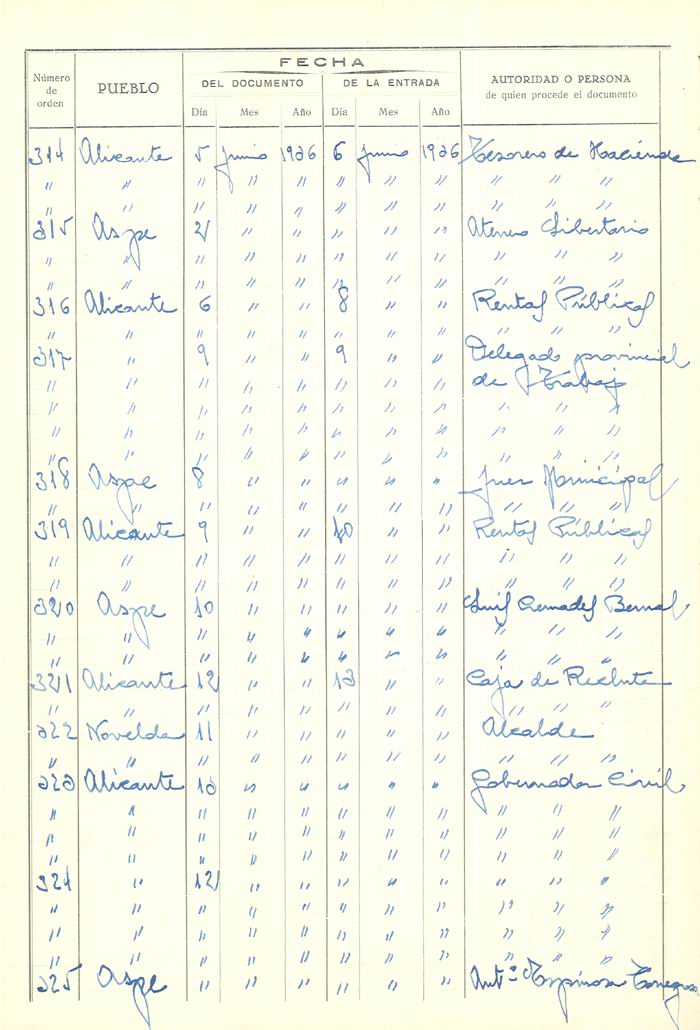 Número de orden PUEBLO FECHA AUTORIDAD O PERSONA de quien procede el documento
DEL DOCUMENTO DE LA ENTRADA
Día Mes Año Día Mes Año
314 Alicante 5 junio 1936 6 junio 1936 Tesorero de Hacienda
" " " " " " " " " " "
" " " " " " " " " " "
315 Aspe 2 " " " " " Ateneo Libertario
" " " " " " " " " " "
" " " " " " " " " " "
316 Alicante 6 " " 8 " " Rentas Públicas
" " " " " " " " " " "
317 " 9 " " 9 " " Delegado provincial
" " " " " " " " de Trabajo
" " " " " " " " " " "
" " " " " " " " " " "
" " " " " " " " " " "
318 Aspe 8 " " " " " Juez Municipal
" " " " " " " " " " "
319 Alicante 9 " " 10 " " Rentas Públicas
" " " " " " " " " " "
" " " " " " " " " " "
320 Aspe 10 " " " " " Luis Cremades Bernal
" " " " " " " " " " "
" " " " " " " " " " "
321 Alicante 12 " " 13 " " Caja de Recluta
" " " " " " " " " " "
322 Novelda 11 " " " " " Alcalde
" " " " " " " " " " "
323 Alicante 13 " " " " " Gobernador Civil
" " " " " " " " " " "
" " " " " " " " " " "
" " " " " " " " " " "
324 " 12 " " " " " " " "
" " " " " " " " " " "
" " " " " " " " " " "
" " " " " " " " " " "
325 Aspe " " " " " " Antº Espinosa